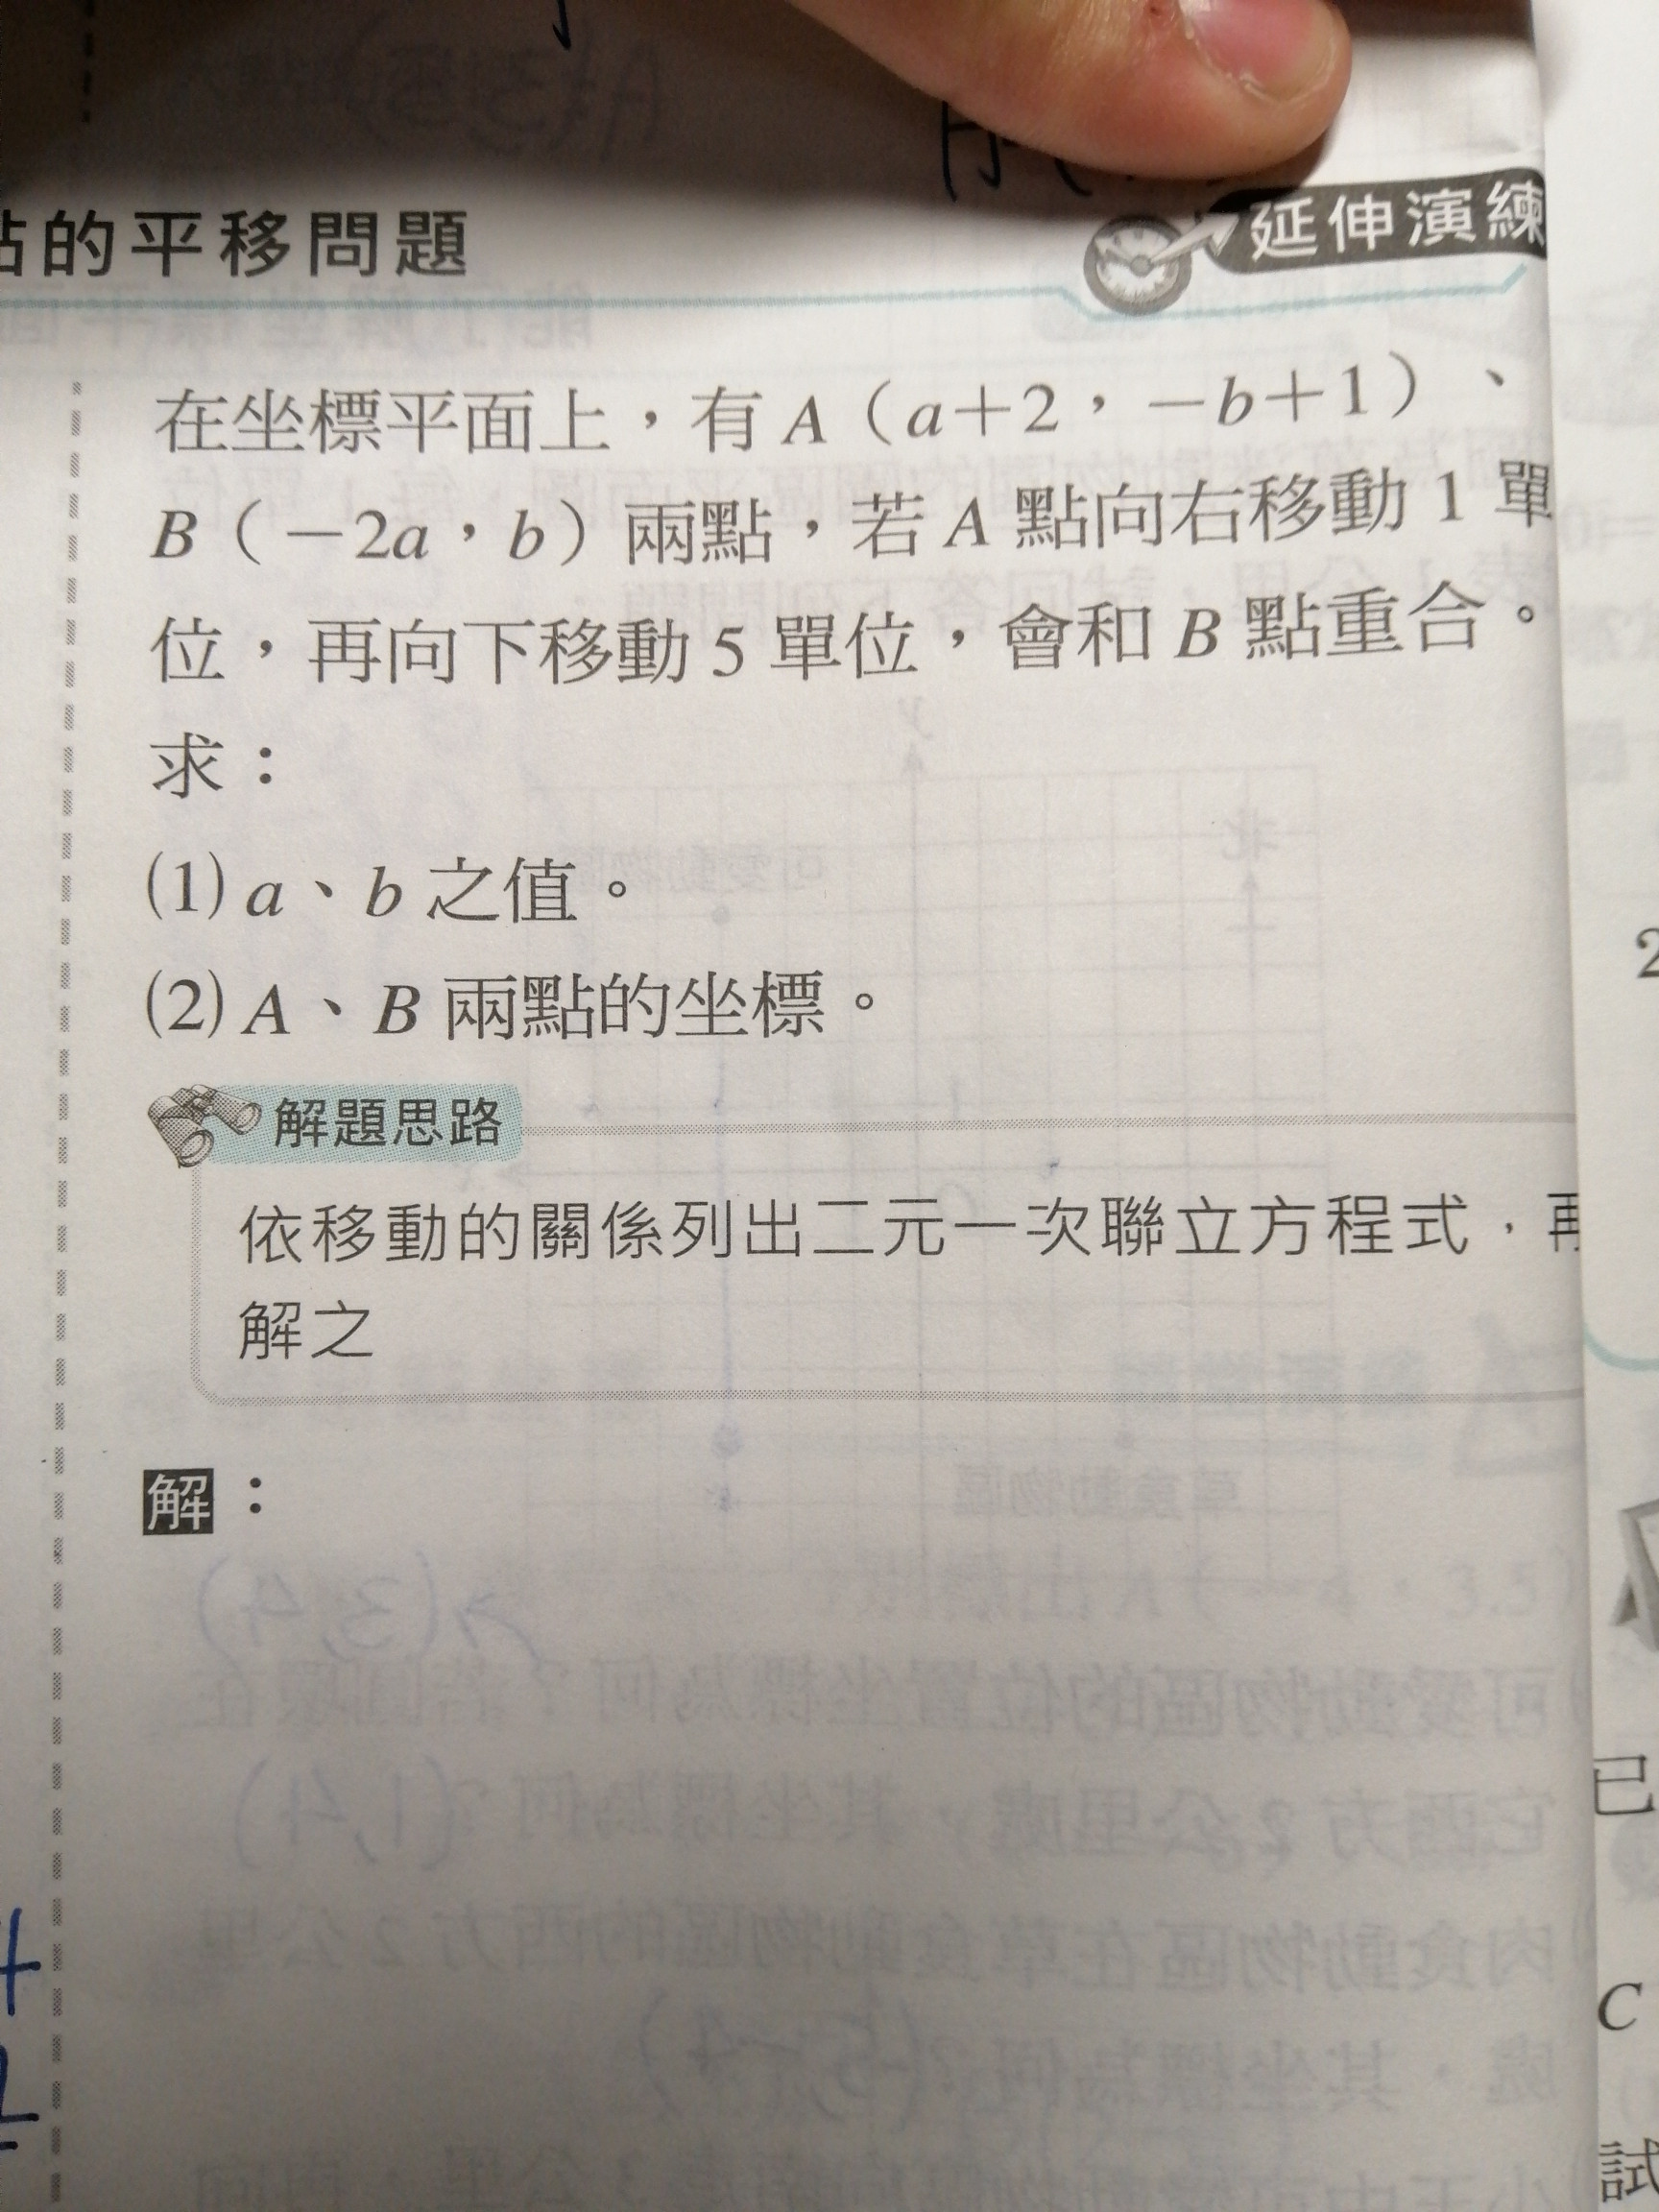 的平移問題
延伸演練
在坐標平面上，有 A（a＋2，－b＋1）、
B（－2a，b）兩點，若 A 點向右移動 1 單
位，再向下移動 5 單位，會和 B 點重合。
求：
(1) a、b 之值。
(2) A、B 兩點的坐標。
解題思路
依移動的關係列出二元一次聯立方程式，再
解之
解：
2
已
C
試